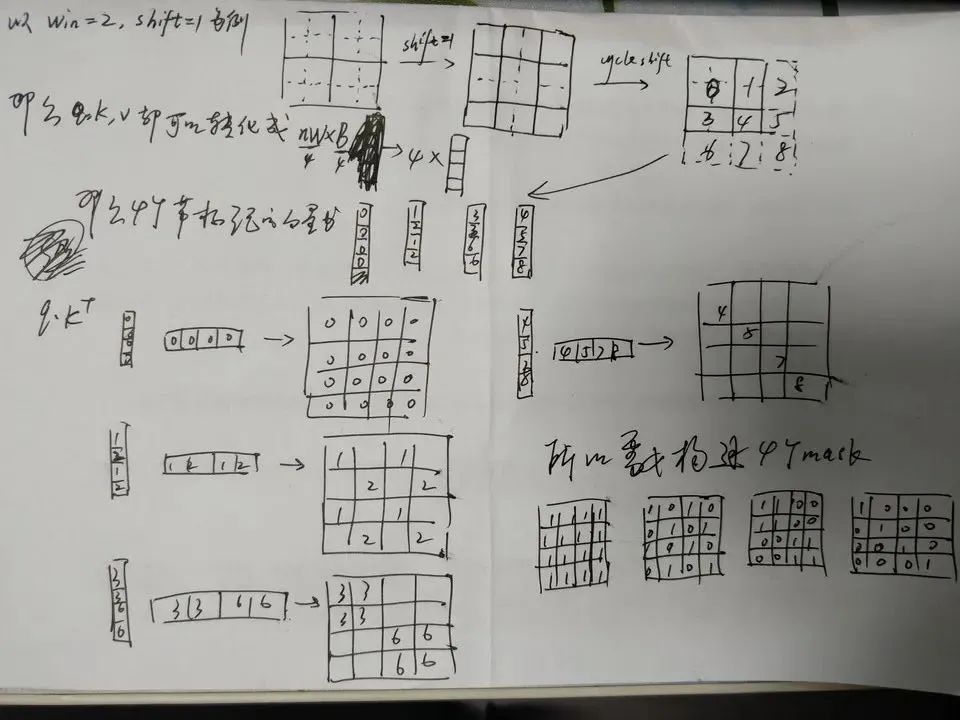 以 win=2, shift=1 为例
shift=1
cycle shift
0 1 2
3 4 5
6 7 8
那么 q.k,v 都可以转化成 nW×B
4 4
→ 4 ×
那么4个节标记的
0 1 3 4
0 2 3 5
0 1 6 7
0 2 6 8
q·k^T
0
0
0
0
0 0 0 0
→
0 0 0 0
0 0 0 0
0 0 0 0
0 0 0 0
4
5
7
8
4 5 7 8
→
4
5
7
8
1
2
1
2
1 2 1 2
→
1 1
2 2
1 1
2 2
3
3
6
6
3 3 6 6
→
3 3
3 3
6 6
6 6
所以要构造4个mask
1 1 1 1
1 1 1 1
1 1 1 1
1 1 1 1
1 0 1 0
0 1 0 1
1 0 1 0
0 1 0 1
1 1 0 0
1 1 0 0
0 0 1 1
0 0 1 1
1 0 0 0
0 1 0 0
0 0 1 0
0 0 0 1